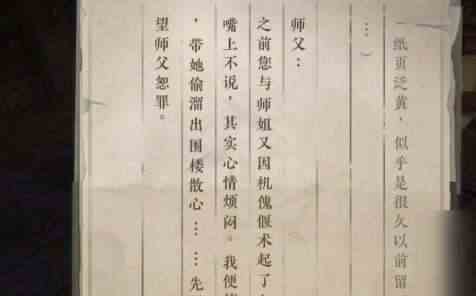 纸页泛黄，似乎是很久以前留
…）
师父：
之前您与师姐又因机傀偃术起了
嘴上不说，其实心情烦闷。我便
，带她偷溜出围楼散心……先
望师父恕罪。